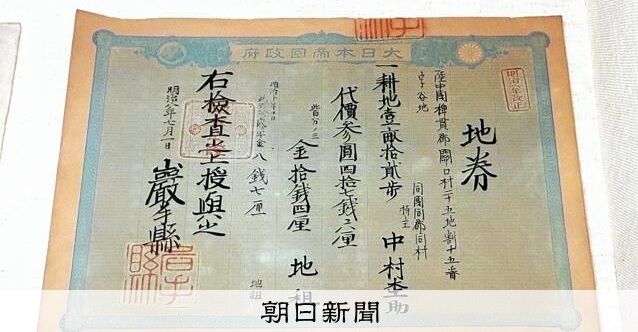 大日本帝國政府
明治八年改正
地券
陸中國稗貫郡關口村二十五地割十五番
字谷地
一耕地壹畝拾貳歩
同國同郡同村
持主 中村
助
代價參圓四拾七錢二厘
此百分ノ三
金拾錢四厘 地租
明治十年ヨリ
八錢七厘 地租
右檢査之上授與之
明治八年七月一日
巖手縣
朝日新聞